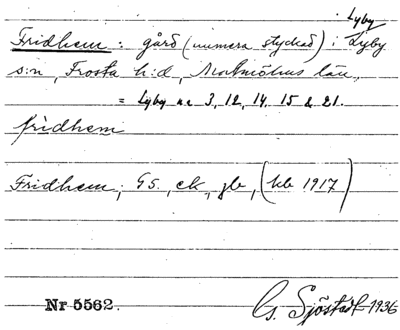 Lyby
Fridhem: gård (numera styckad) i Lyby
s:n, Frosta h:d, Malmöhus län,
= Lyby n:o 3, 12, 14, 15 & 21.
fridhem
Fridhem, GS, ek, jb, (kb 1917)
Nr 5562. G. Sjöstedt 1936